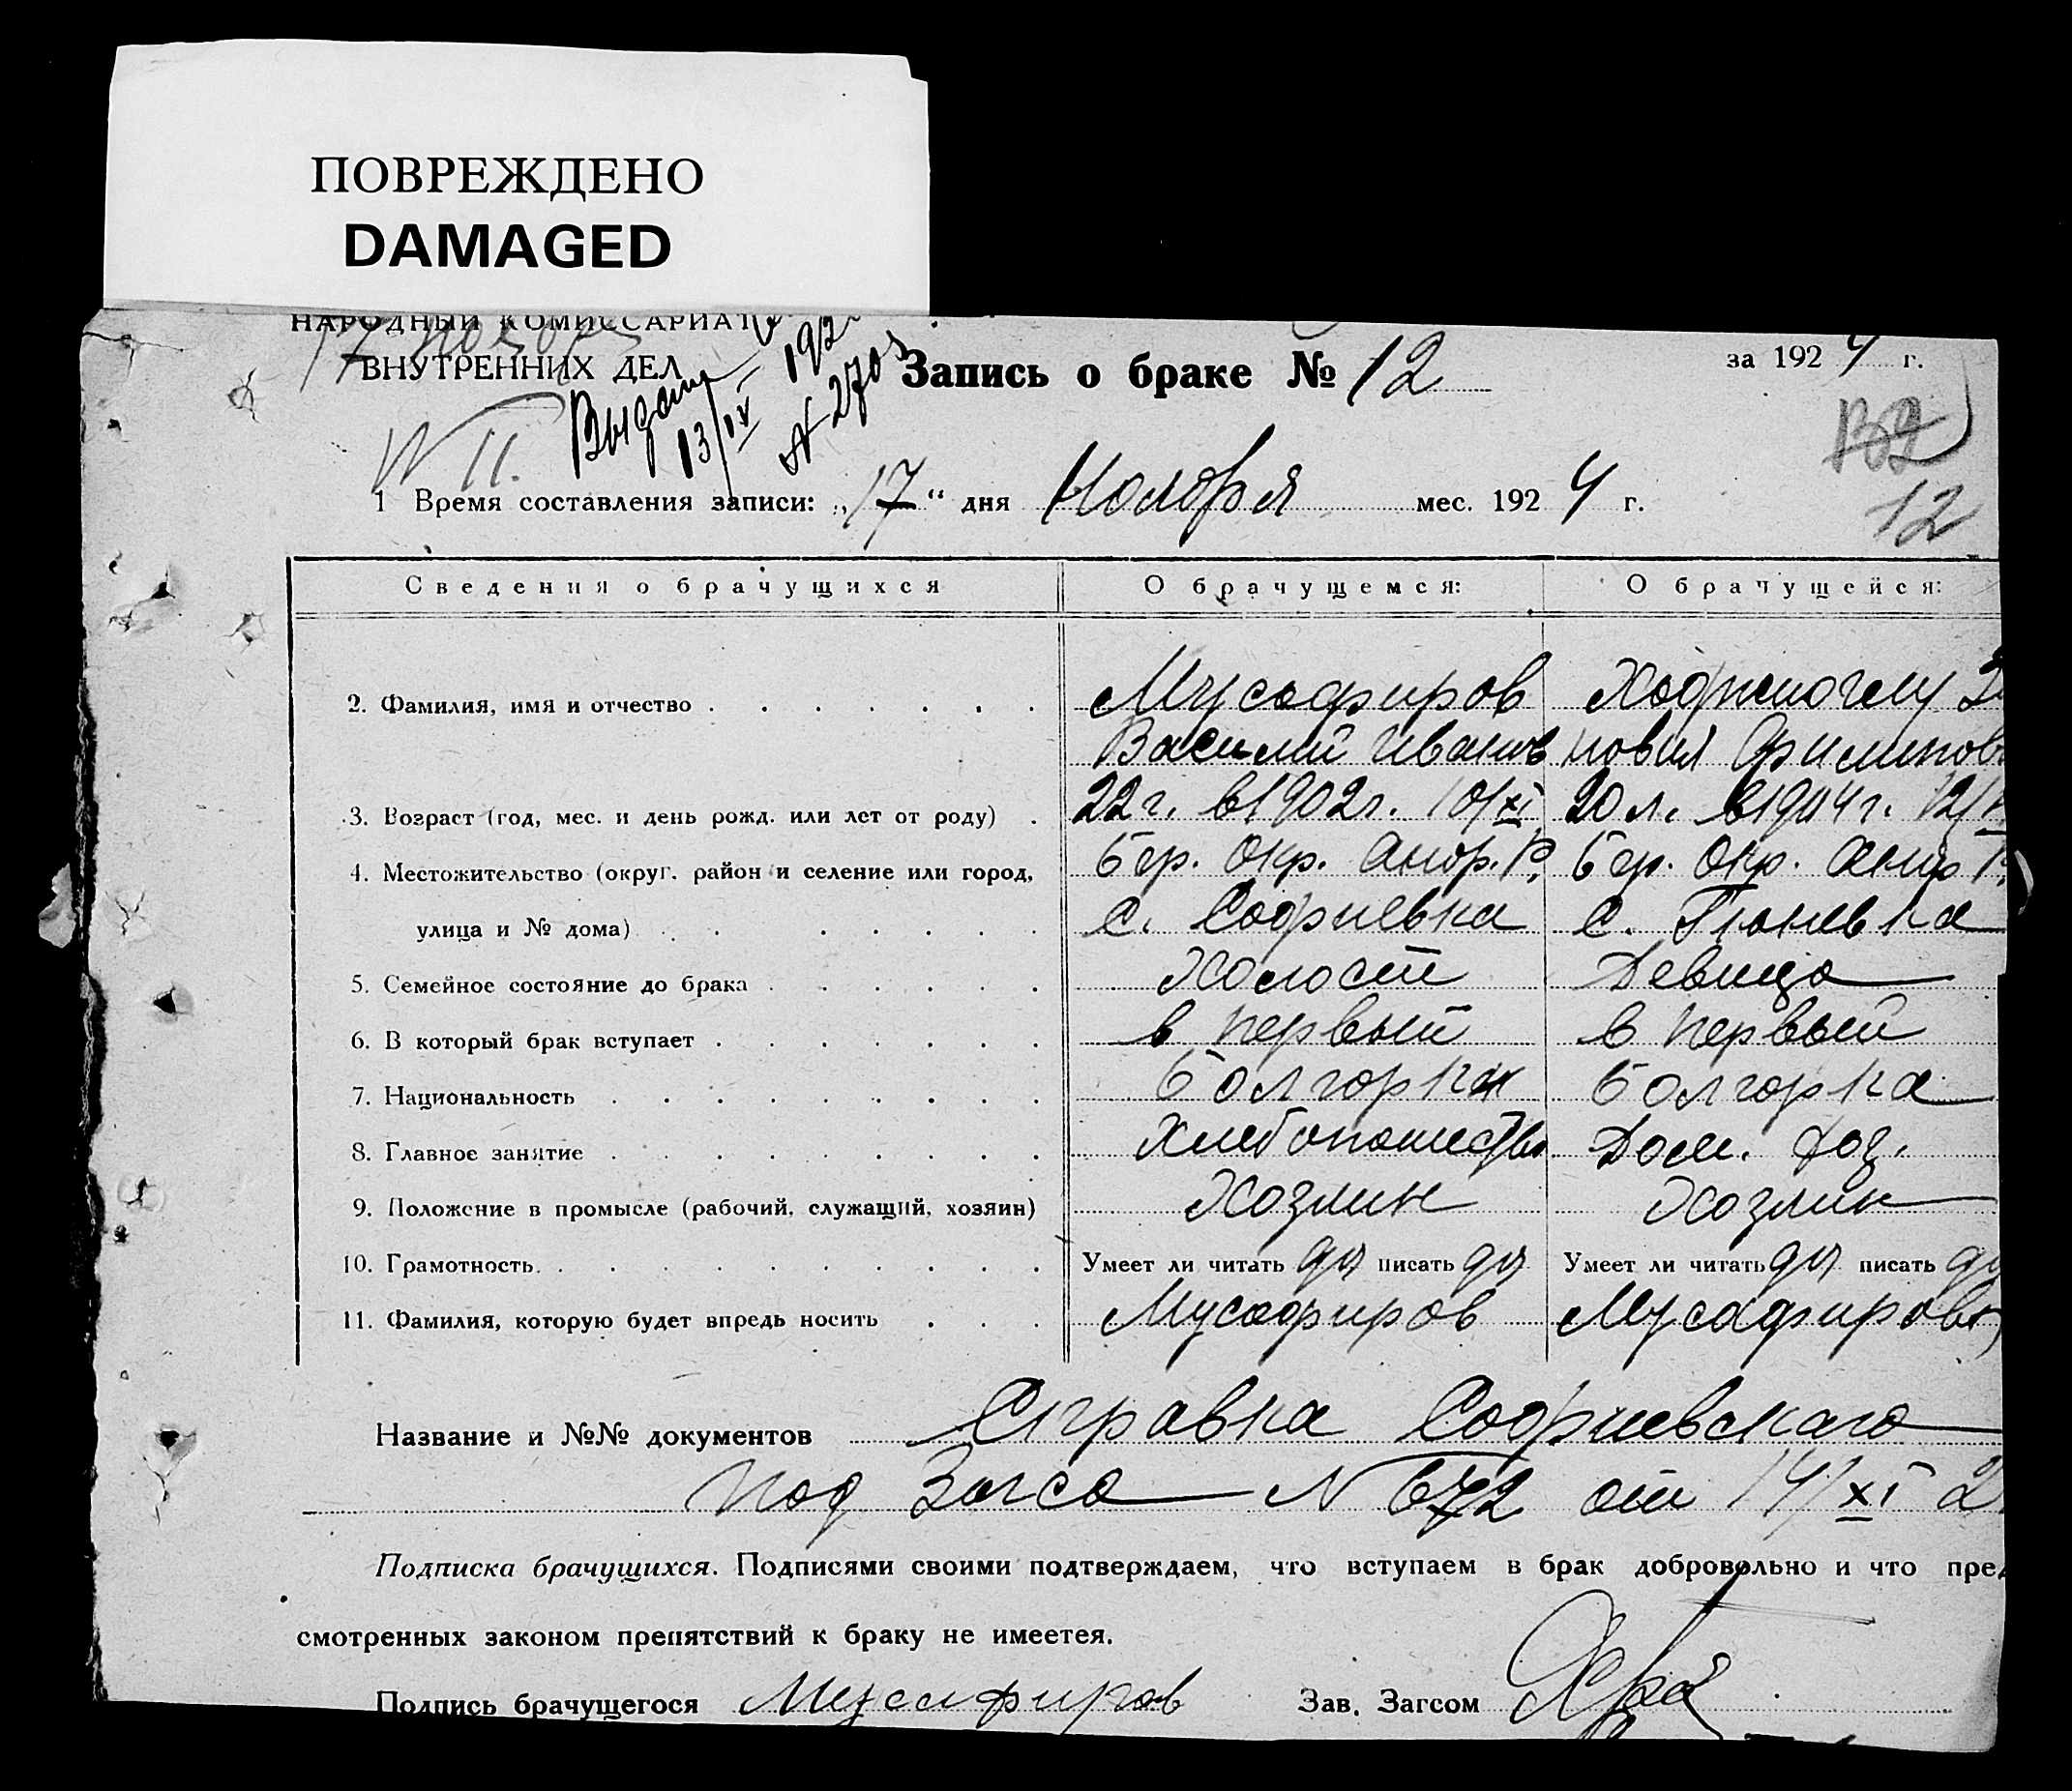 ПОВРЕЖДЕНО
DAMAGED
НАРОДНЫЙ КОМИССАРИАТ
ВНУТРЕННИХ ДЕЛ
17
13/IX
№ 2705
№ 11.
Запись о браке № 12
за 1924 г.
12
1 Время составления записи: „17“ дня Ноября мес. 1924 г.
Сведения о брачущихся О брачущемся: О брачущейся:
2. Фамилия, имя и отчество Мусафиров
Василий Иванов новия Филипов
3. Возраст (год, мес. и день рожд. или лет от роду) 22 г. в 1902 г. 10/XI 20 л. в 1904 г. 12/
4. Местожительство (округ. район и селение или город, Бер. Окр. Андр. Р. Бер. Окр. Андр Р.
улица и № дома) с. Софиевка с. Гюневка
5. Семейное состояние до брака Холост Девица
6. В который брак вступает в первый в первый
7. Национальность Болгорка
8. Главное занятие Дом. хоз.
9. Положение в промысле (рабочий, служащий, хозяин) Хозяин Хозяин
10. Грамотность Умеет ли читать да писать да Умеет ли читать да писать да
11. Фамилия, которую будет впредь носить Мусафиров Мусафирова
Название и №№ документов Справка Софиевскаго
под Загса N 672 от 14/XI 2
Подписка брачущихся. Подписями своими подтверждаем, что вступаем в брак добровольно и что пред
смотренных законом препятствий к браку не имеется.
Подпись брачущегося Мусафиров Зав. Загсом